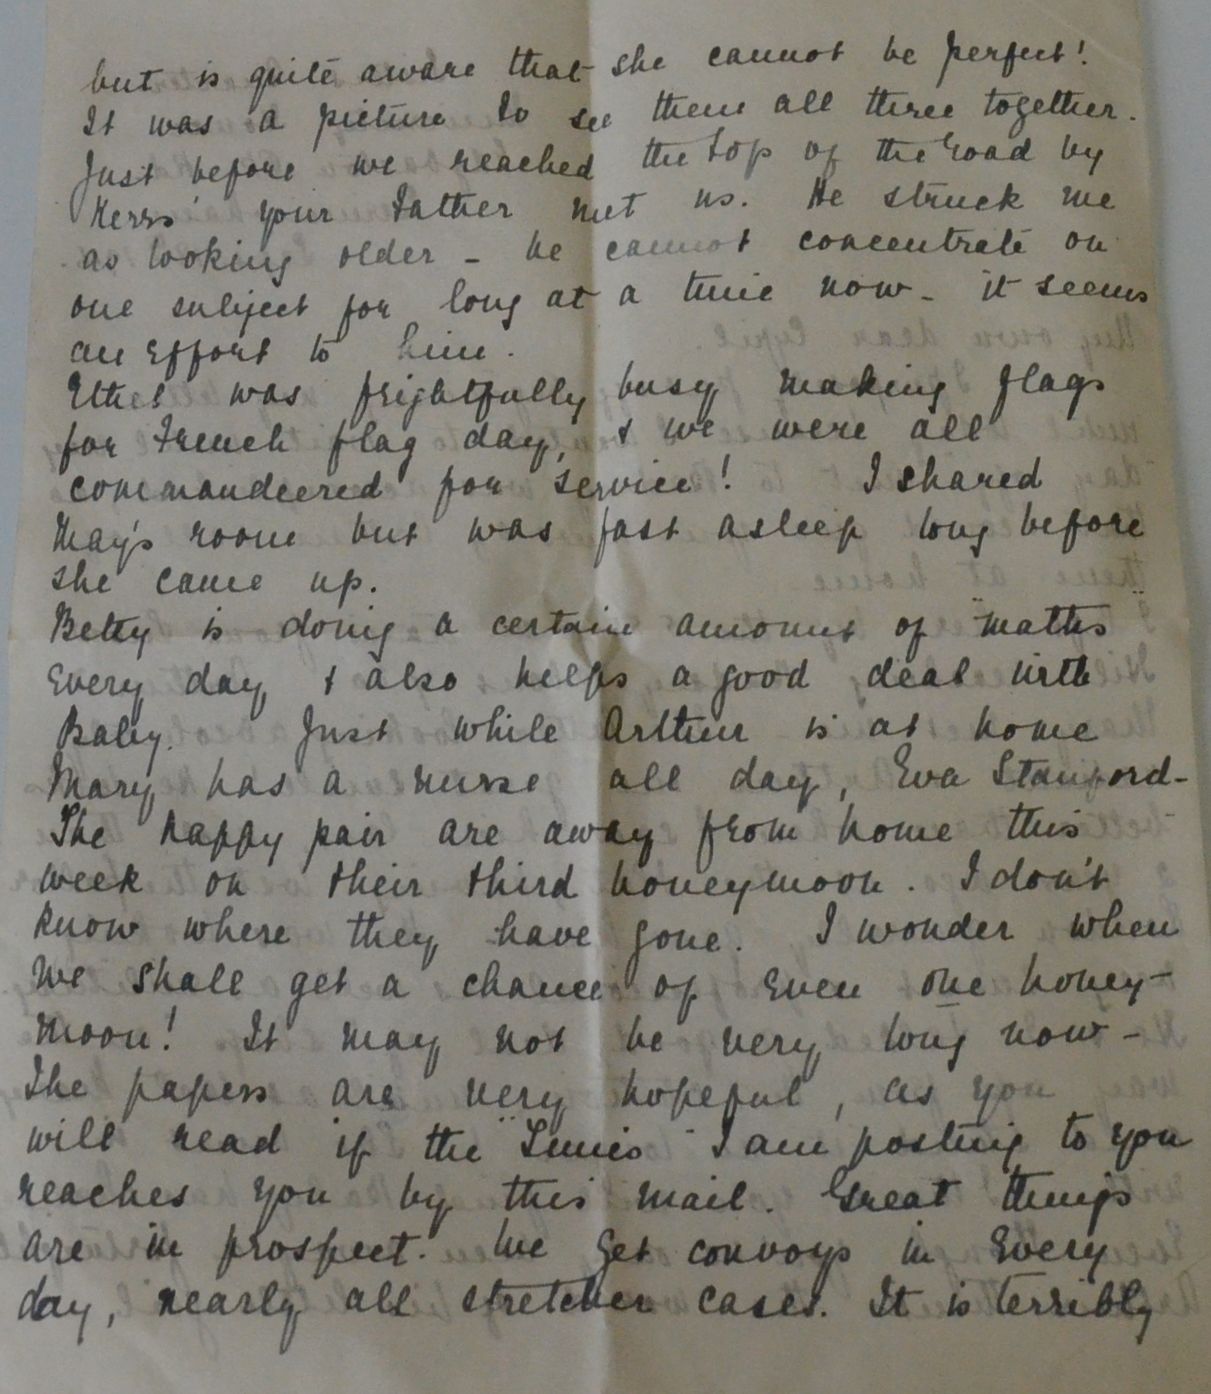 but is quite aware that she cannot be perfect!
It was a picture to see them all three together.
Just before we reached the top of the road by
Kerrs' your Father met us. He struck me
as looking older - he cannot concentrate on
one subject for long at a time now - it seems
an effort to him.
Ethel was frightfully busy making flags
for French flag day, & we were all
commandeered for service! I shared
May's room but was fast asleep long before
she came up.
Betty is doing a certain amount of "maths"
every day & also helps a good deal with
Baby. Just while Arthur is at home
Mary has a nurse all day, Eva Stanford -
The happy pair are away from home this
week on their third honeymoon. I don't
know where they have gone. I wonder when
we shall get a chance of even one honey-
moon! It may not be very long now -
The papers are very hopeful, as you
will read if the "Times" I am posting to you
reaches you by this mail. Great things
are in prospect. We get convoys in every
day, nearly all stretcher cases. It is terribly